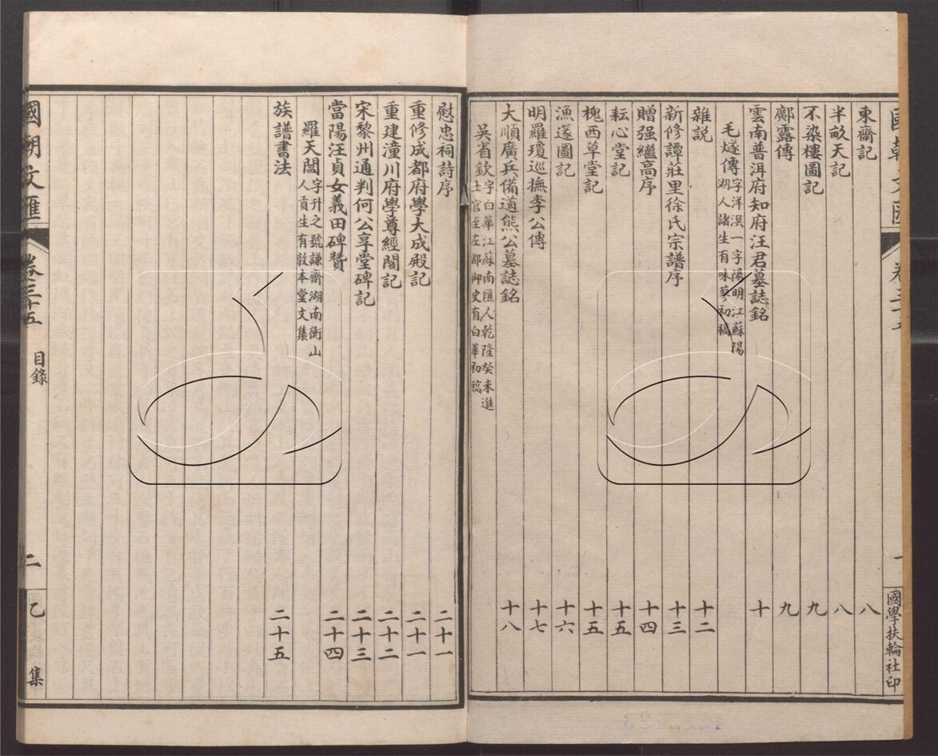 東齋記 八
半畝天記 八
不染樓圖記 九
鄺露傳 九
雲南普洱府知府汪君墓誌銘 十
毛燧傳 字洋溟一字陽明江蘇陽
湖人諸生有味蓼初稿
雜說 十二
新修譚莊里徐氏宗譜序 十三
贈强繼高序 十四
耘心堂記 十五
槐西草堂記 十五
漁邃圖記 十六
明羅瓊巡撫李公傳 十七
大順廣兵備道熊公墓誌銘 十八
吳省欽 字白華江蘇南匯人乾隆癸未進
士官至左都御史有白華初稿
國學扶輪社印
慰忠祠詩序 二十一
重修成都府學大成殿記 二十一
重建潼川府學尊經閣記 二十二
宋黎州通判何公享堂碑記 二十三
當陽汪貞女義田碑贊 二十四
羅天閶 字升之號謙齋湖南衡山
人貢生有敦本堂文集
族譜書法 二十五
國朝文匯 卷三十五 目錄 二 乙集